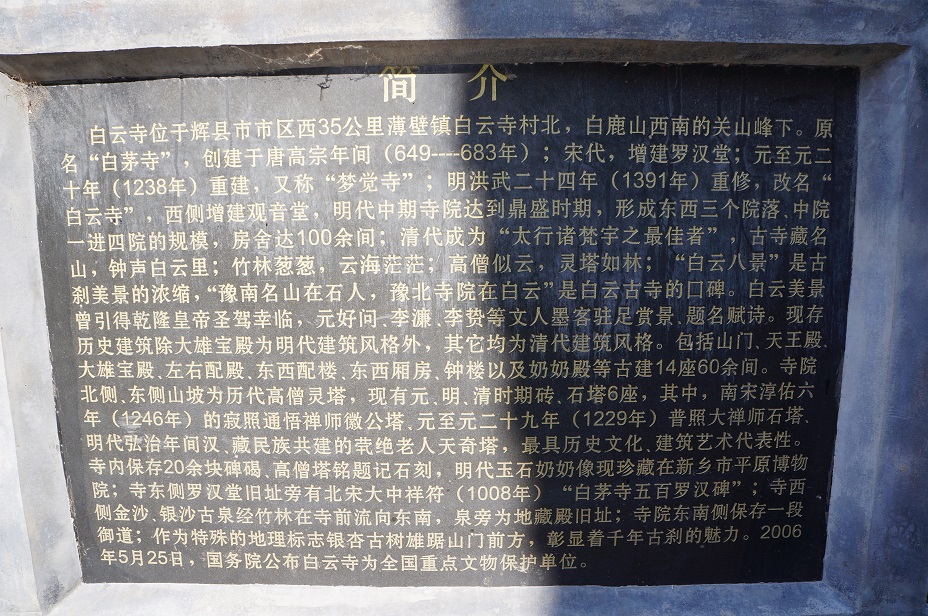 简 介
白云寺位于辉县市市区西35公里薄壁镇白云寺村北，白鹿山西南的关山峰下。原
名“白茅寺”，创建于唐高宗年间（649----683年）；宋代，增建罗汉堂；元至元二
十年（1238年）重建，又称“梦觉寺”；明洪武二十四年（1391年）重修，改名“
白云寺”，西侧增建观音堂，明代中期寺院达到鼎盛时期，形成东西三个院落、中院
一进四院的规模，房舍达100余间；清代成为“太行诸梵宇之最佳者”，古寺藏名
山，钟声白云里；竹林葱葱，云海茫茫；高僧似云，灵塔如林；“白云八景”是古
刹美景的浓缩，“豫南名山在石人，豫北寺院在白云”是白云古寺的口碑。白云美景
曾引得乾隆皇帝圣驾幸临，元好问、李濂、李贽等文人墨客驻足赏景、题名赋诗。现存
历史建筑除大雄宝殿为明代建筑风格外，其它均为清代建筑风格。包括山门、天王殿、
大雄宝殿、左右配殿、东西配楼、东西厢房、钟楼以及奶奶殿等古建14座60余间。寺院
北侧、东侧山坡为历代高僧灵塔，现有元、明、清时期砖、石塔6座，其中，南宋淳佑六
年（1246年）的寂照通悟禅师徽公塔、元至元二十九年（1229年）普照大禅师石塔、
明代弘治年间汉、藏民族共建的茕绝老人天奇塔，最具历史文化、建筑艺术代表性。
寺内保存20余块碑碣、高僧塔铭题记石刻，明代玉石奶奶像现珍藏在新乡市平原博物
院；寺东侧罗汉堂旧址旁有北宋大中祥符（1008年）“白茅寺五百罗汉碑”；寺西
侧金沙、银沙古泉经竹林在寺前流向东南，泉旁为地藏殿旧址；寺院东南侧保存一段
御道；作为特殊的地理标志银杏古树雄踞山门前方，彰显着千年古刹的魅力。2006
年5月25日，国务院公布白云寺为全国重点文物保护单位。